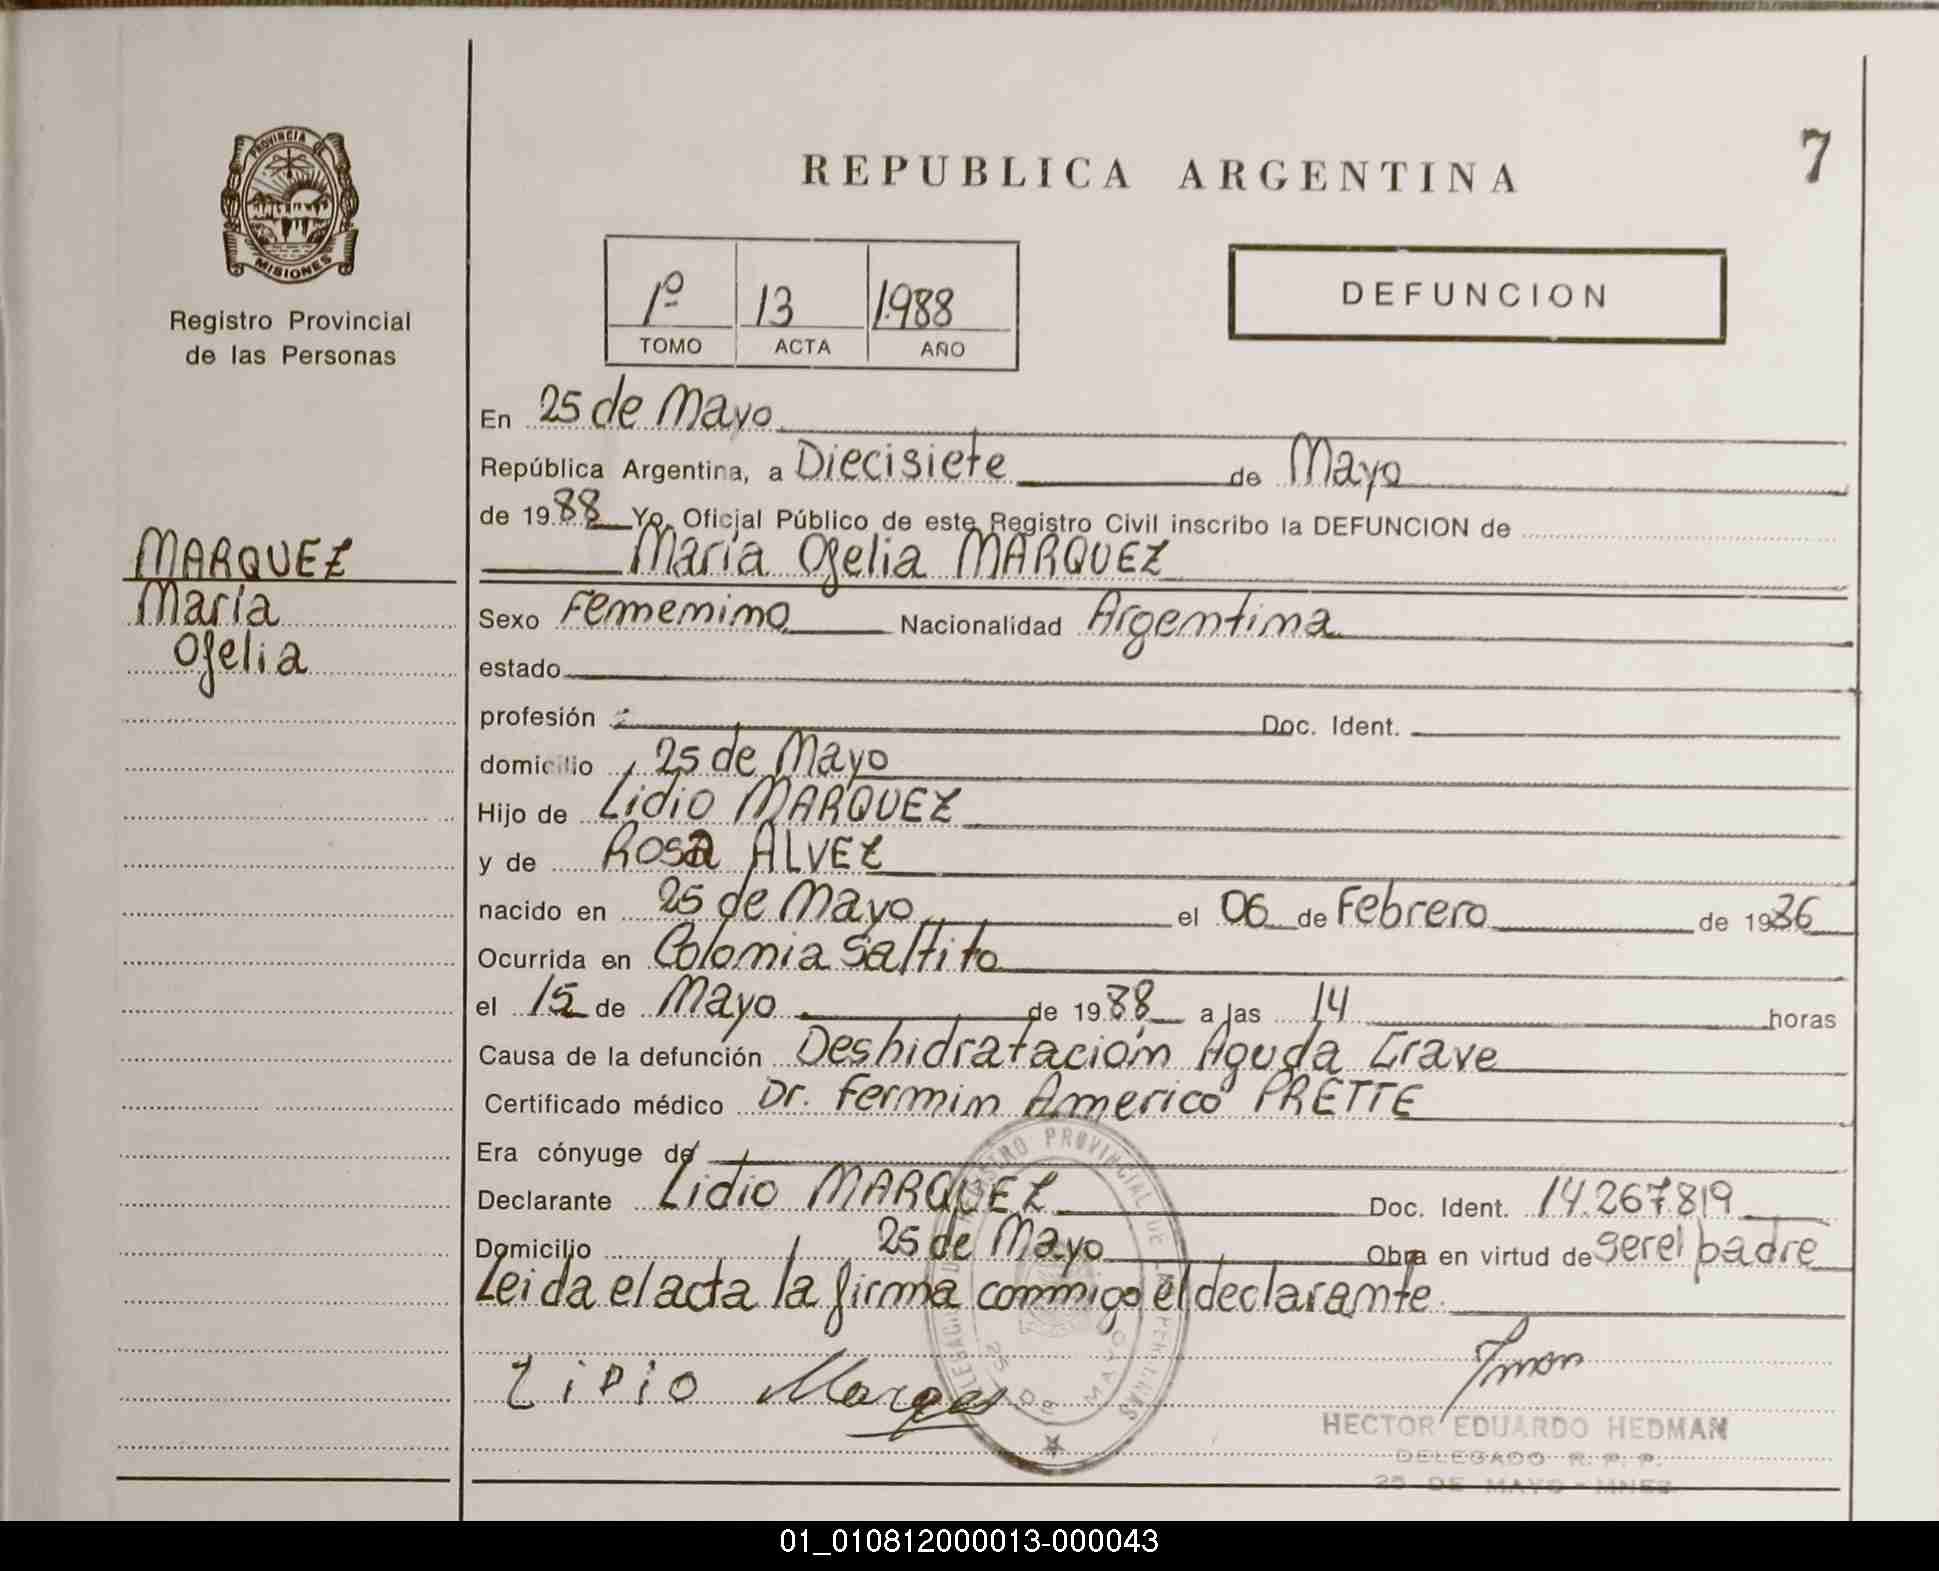 7
REPUBLICA ARGENTINA
PROVINCIA DE
MISIONES
Registro Provincial
de las Personas
1º 13 1.988
TOMO ACTA AÑO
DEFUNCION
MARQUEZ
María
Ofelia
En 25 de Mayo
República Argentina, a Diecisiete de Mayo
de 1988 Yo, Oficial Público de este Registro Civil inscribo la DEFUNCION de
María Ofelia MARQUEZ
Sexo Femenino Nacionalidad Argentina
estado
profesión Doc. Ident.
domicilio 25 de Mayo
Hijo de Lidio MARQUEZ
y de Rosa ALVEZ
nacido en 25 de Mayo el 06 de Febrero de 19
Ocurrida en Colonia Saltito
el 15 de Mayo de 1988 a las 14 horas
Causa de la defunción Deshidratación Aguda Grave
Certificado médico Dr. Fermin Americo PRETTE
Era cónyuge de
Declarante Lidio MARQUEZ Doc. Ident. 14.267.819
Domicilio 25 de Mayo Obra en virtud de ser el padre
Leida el acta la firma conmigo el declarante.
REGISTRO PROVINCIAL DE LAS PERSONAS
25 DE MAYO
HECTOR EDUARDO HEDMAN
DELEGADO R. P. P.
25 DE MAYO - MNES
01_010812000013-000043